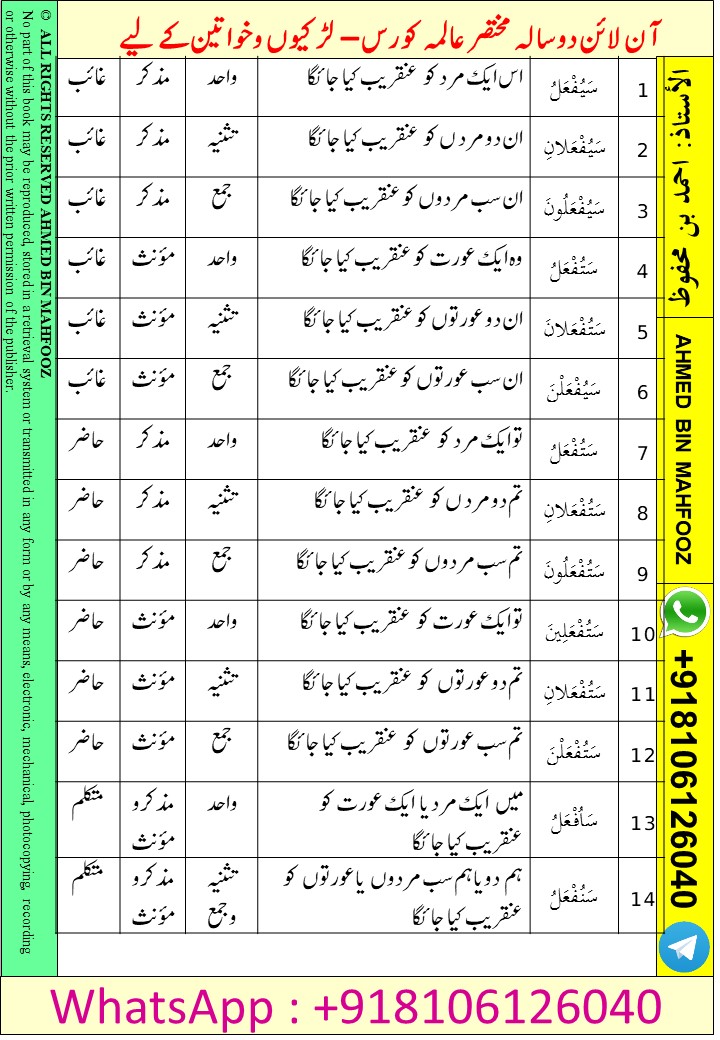 آن لائن دوسالہ مختصر عالمہ کورس – لڑکیوں وخواتین کے لیے
1 سَيُفْعَلُ اس ایک مرد کو عنقریب کیا جائگا واحد مذکر غائب
2 سَيُفْعَلَانِ ان دو مردں کو عنقریب کیا جائگا تثنیہ مذکر غائب
3 سَيُفْعَلُونَ ان سب مردوں کو عنقریب کیا جائگا جمع مذکر غائب
4 سَتُفْعَلُ وہ ایک عورت کو عنقریب کیا جائگا واحد مؤنث غائب
5 سَتُفْعَلَانَ ان دو عورتوں کو عنقریب کیا جائگا تثنیہ مؤنث غائب
6 سَيُفْعَلْنَ ان سب عورتوں کو عنقریب کیا جائگا جمع مؤنث غائب
7 سَتُفْعَلُ تو ایک مرد کو عنقریب کیا جائگا واحد مذکر حاضر
8 سَتُفْعَلَانِ تم دو مردں کو عنقریب کیا جائگا تثنیہ مذکر حاضر
9 سَتُفْعَلُونَ تم سب مردوں کو عنقریب کیا جائگا جمع مذکر حاضر
10 سَتُفْعَلِينَ تو ایک عورت کو عنقریب کیا جائگا واحد مؤنث حاضر
11 سَتُفْعَلَانِ تم دو عورتوں کو عنقریب کیا جائگا تثنیہ مؤنث حاضر
12 سَتُفْعَلْنَ تم سب عورتوں کو عنقریب کیا جائگا جمع مؤنث حاضر
13 سَأُفْعَلُ میں ایک مرد یا ایک عورت کو واحد مذکر و متکلم
عنقریب کیا جائگا مؤنث
14 سَنُفْعَلُ ہم دو یا ہم سب مردوں یا عورتوں کو تثنیہ مذکر و متکلم
عنقریب کیا جائگا و جمع مؤنث
الأستاذ: احمد بن محفوظ
AHMED BIN MAHFOOZ
+918106126040
© ALL RIGHTS RESERVED AHMED BIN MAHFOOZ
No part of this book may be reproduced, stored in a retrieval system or transmitted in any form or by any means, electronic, mechanical, photocopying, recording
or otherwise without the prior written permission of the publisher.
WhatsApp : +918106126040